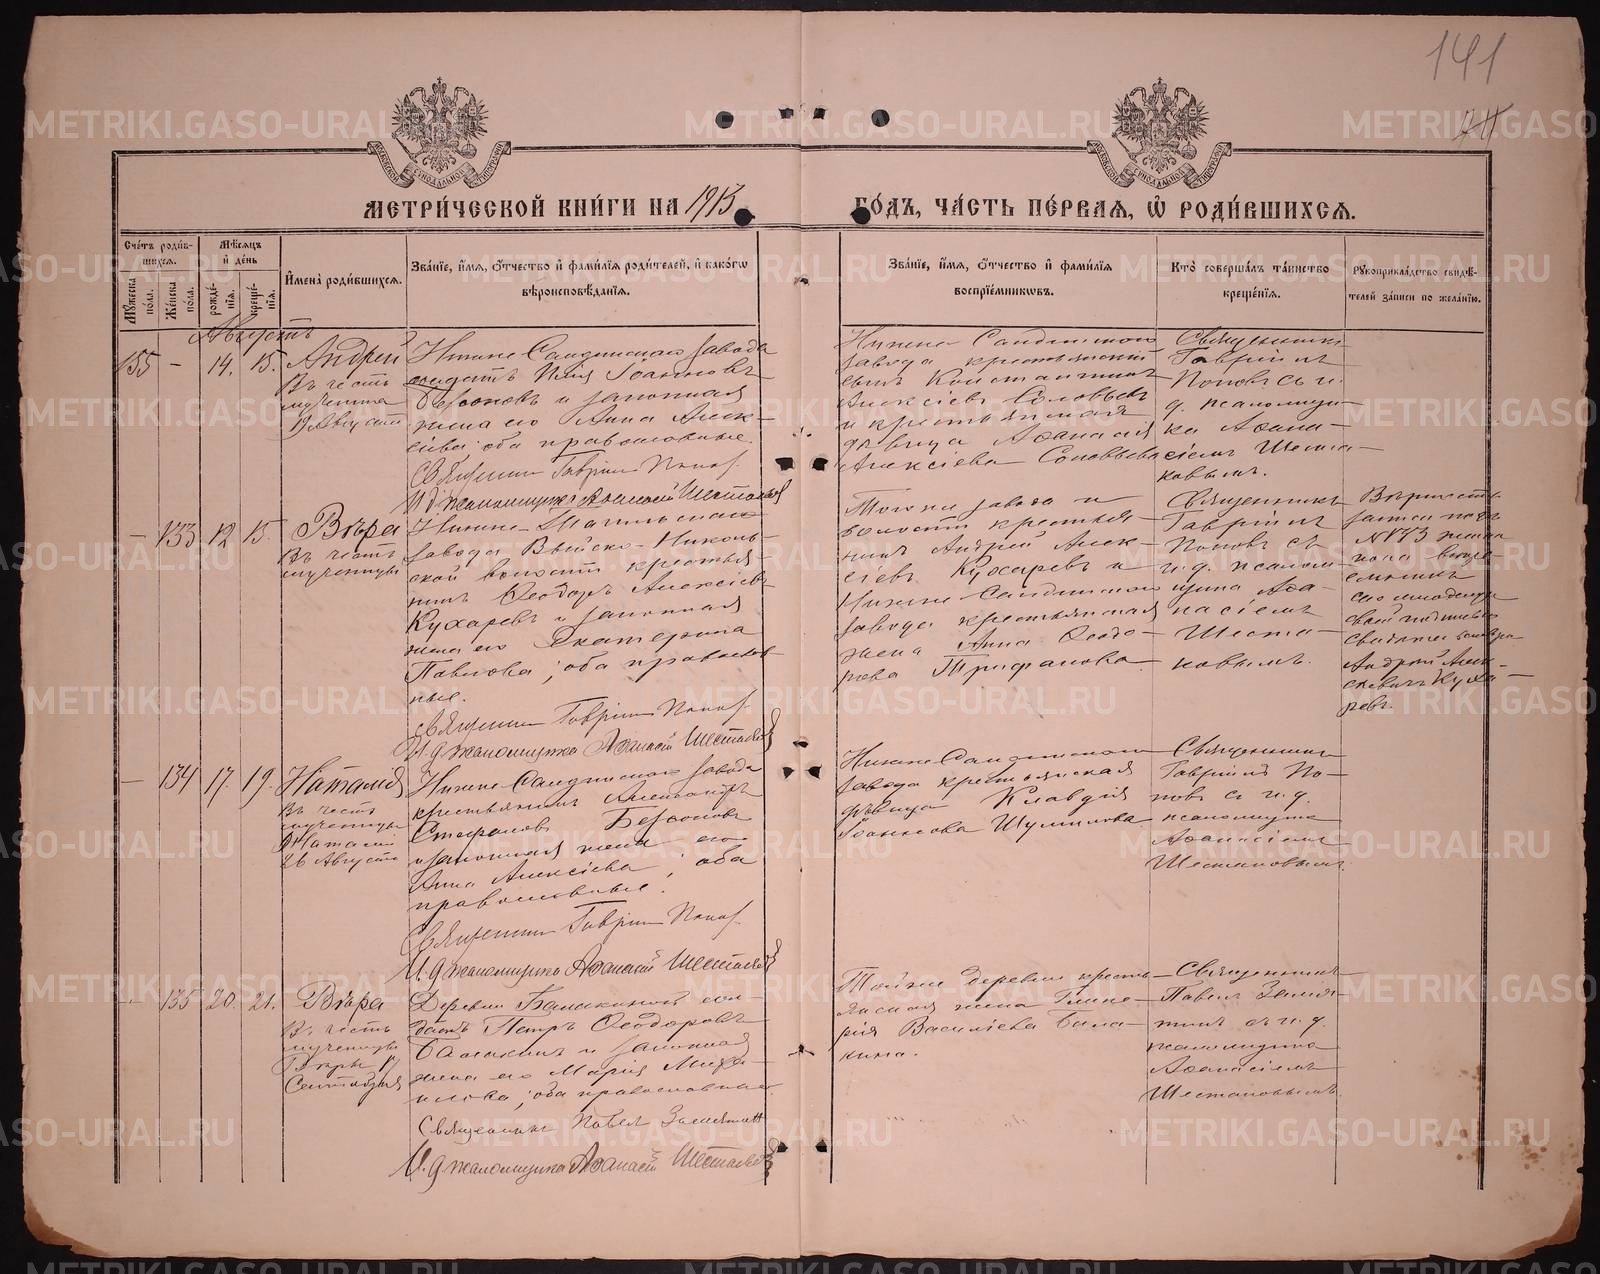 141
МЕТРИ́ЧЕСКОЙ КНИ́ГИ НА 1913 ГО́ДЪ, ЧА́СТЬ ПЕ́РВАЯ, Ѡ РОДИ́ВШИХСЯ.
Сче́тъ роди́в-
шихся.
Мѣ́сяцъ
и҆ де́нь
Мꙋ́жеска
по́ла.
Же́нска
по́ла.
рожде́-
нїя.
креще́-
нїя.
И҆мена̀ роди́вшихся.
Зва́нїе, и҆́мя, ѻ҆́тчество и҆ фами́лїя роди́телей, и҆ како́гѡ
вѣроисповѣ́данїя.
Зва́нїе, и҆́мя, ѻ҆́тчество и҆ фами́лїя
воспрїе́мникѡвъ.
Кто̀ соверша́лъ та́инство
креще́нїя.
Рꙋкоприкла́дство свидѣ́-
телей за́писи по жела́нїю.
Августъ
155 – 14. 15.
Андрей
Въ честь
мученика
19 Августа
Нижне Салдинскаго завода
солдатъ Илія Іоанновъ
Берсоновъ и законная
жена его Анна Алек-
сіева; оба православные.
Священникъ Гавріилъ Поповъ
И. д. псаломщика Аѳанасій Шестаковъ
Нижне Салдинского
завода крестьянскій
сынъ Константинъ
Алексіевъ Соловьевъ
и крестьянская
дѣвица Аѳанасія
Алексіева Соловьева
Священникъ
Гавріилъ
Поповъ съ и.
д. псаломщи-
ка Аѳана-
сіемъ Шеста-
ковымъ.
– 133 12 15.
Вѣра
Въ честь
мученицы
Нижне-Тагильскаго
завода Выйско-Николь-
ской волости крестья-
нинъ Ѳеодоръ Алексіевъ
Кухаревъ и законная
жена его Екатерина
Павлова; оба православ-
ные.
Священникъ Гавріилъ Поповъ
И. д. псаломщика Аѳанасій Шестаковъ
завода и
волости крестья-
нинъ Андрей Алек-
сіевъ Кухаревъ и
Нижне Салдинского
завода крестьянская
жена Анна Ѳеодо-
рова Трифанова
Священникъ
Гавріилъ
Поповъ съ
и. д. псалом-
щика Аѳа-
насіемъ
Шеста-
ковымъ.
записи подъ
№ 133 женска
пола
Андрей Алек-
сѣевичъ Куха-
ревъ.
– 134 17. 19.
Наталія
Въ честь
мученицы
Наталіи
26 Августа
Нижне Салдинскаго завода
крестьянинъ Александръ
Стефановъ Берсоновъ
и законная жена его
Анна Алексіева; оба
православные.
Священникъ Гавріилъ Поповъ
И. д. псаломщика Аѳанасій Шестаковъ
Нижне Салдинского
завода крестьянская
дѣвица Клавдія
Іоаннова Шумилова
Священникъ
Гавріилъ По-
повъ съ и. д.
псаломщика
Аѳанасіемъ
Шестаковымъ.
– 135 20. 21.
Вѣра
Въ честь
мученицы
Вѣры 17
Сентября
Деревни Балакиной сол-
датъ Петръ Ѳеодоровъ
Балакинъ и законная
жена его Марія Миха-
илова; оба православные
Священникъ Павелъ Замятинъ
И. д. псаломщика Аѳанасій Шестаковъ
Той же деревни кресть-
янская жена Глике-
рія Василіева Бала-
кина.
Священникъ
Павелъ Замя-
тинъ съ и. д.
псаломщика
Аѳанасіемъ
Шестаковымъ.
METRIKI.GASO-URAL.RU